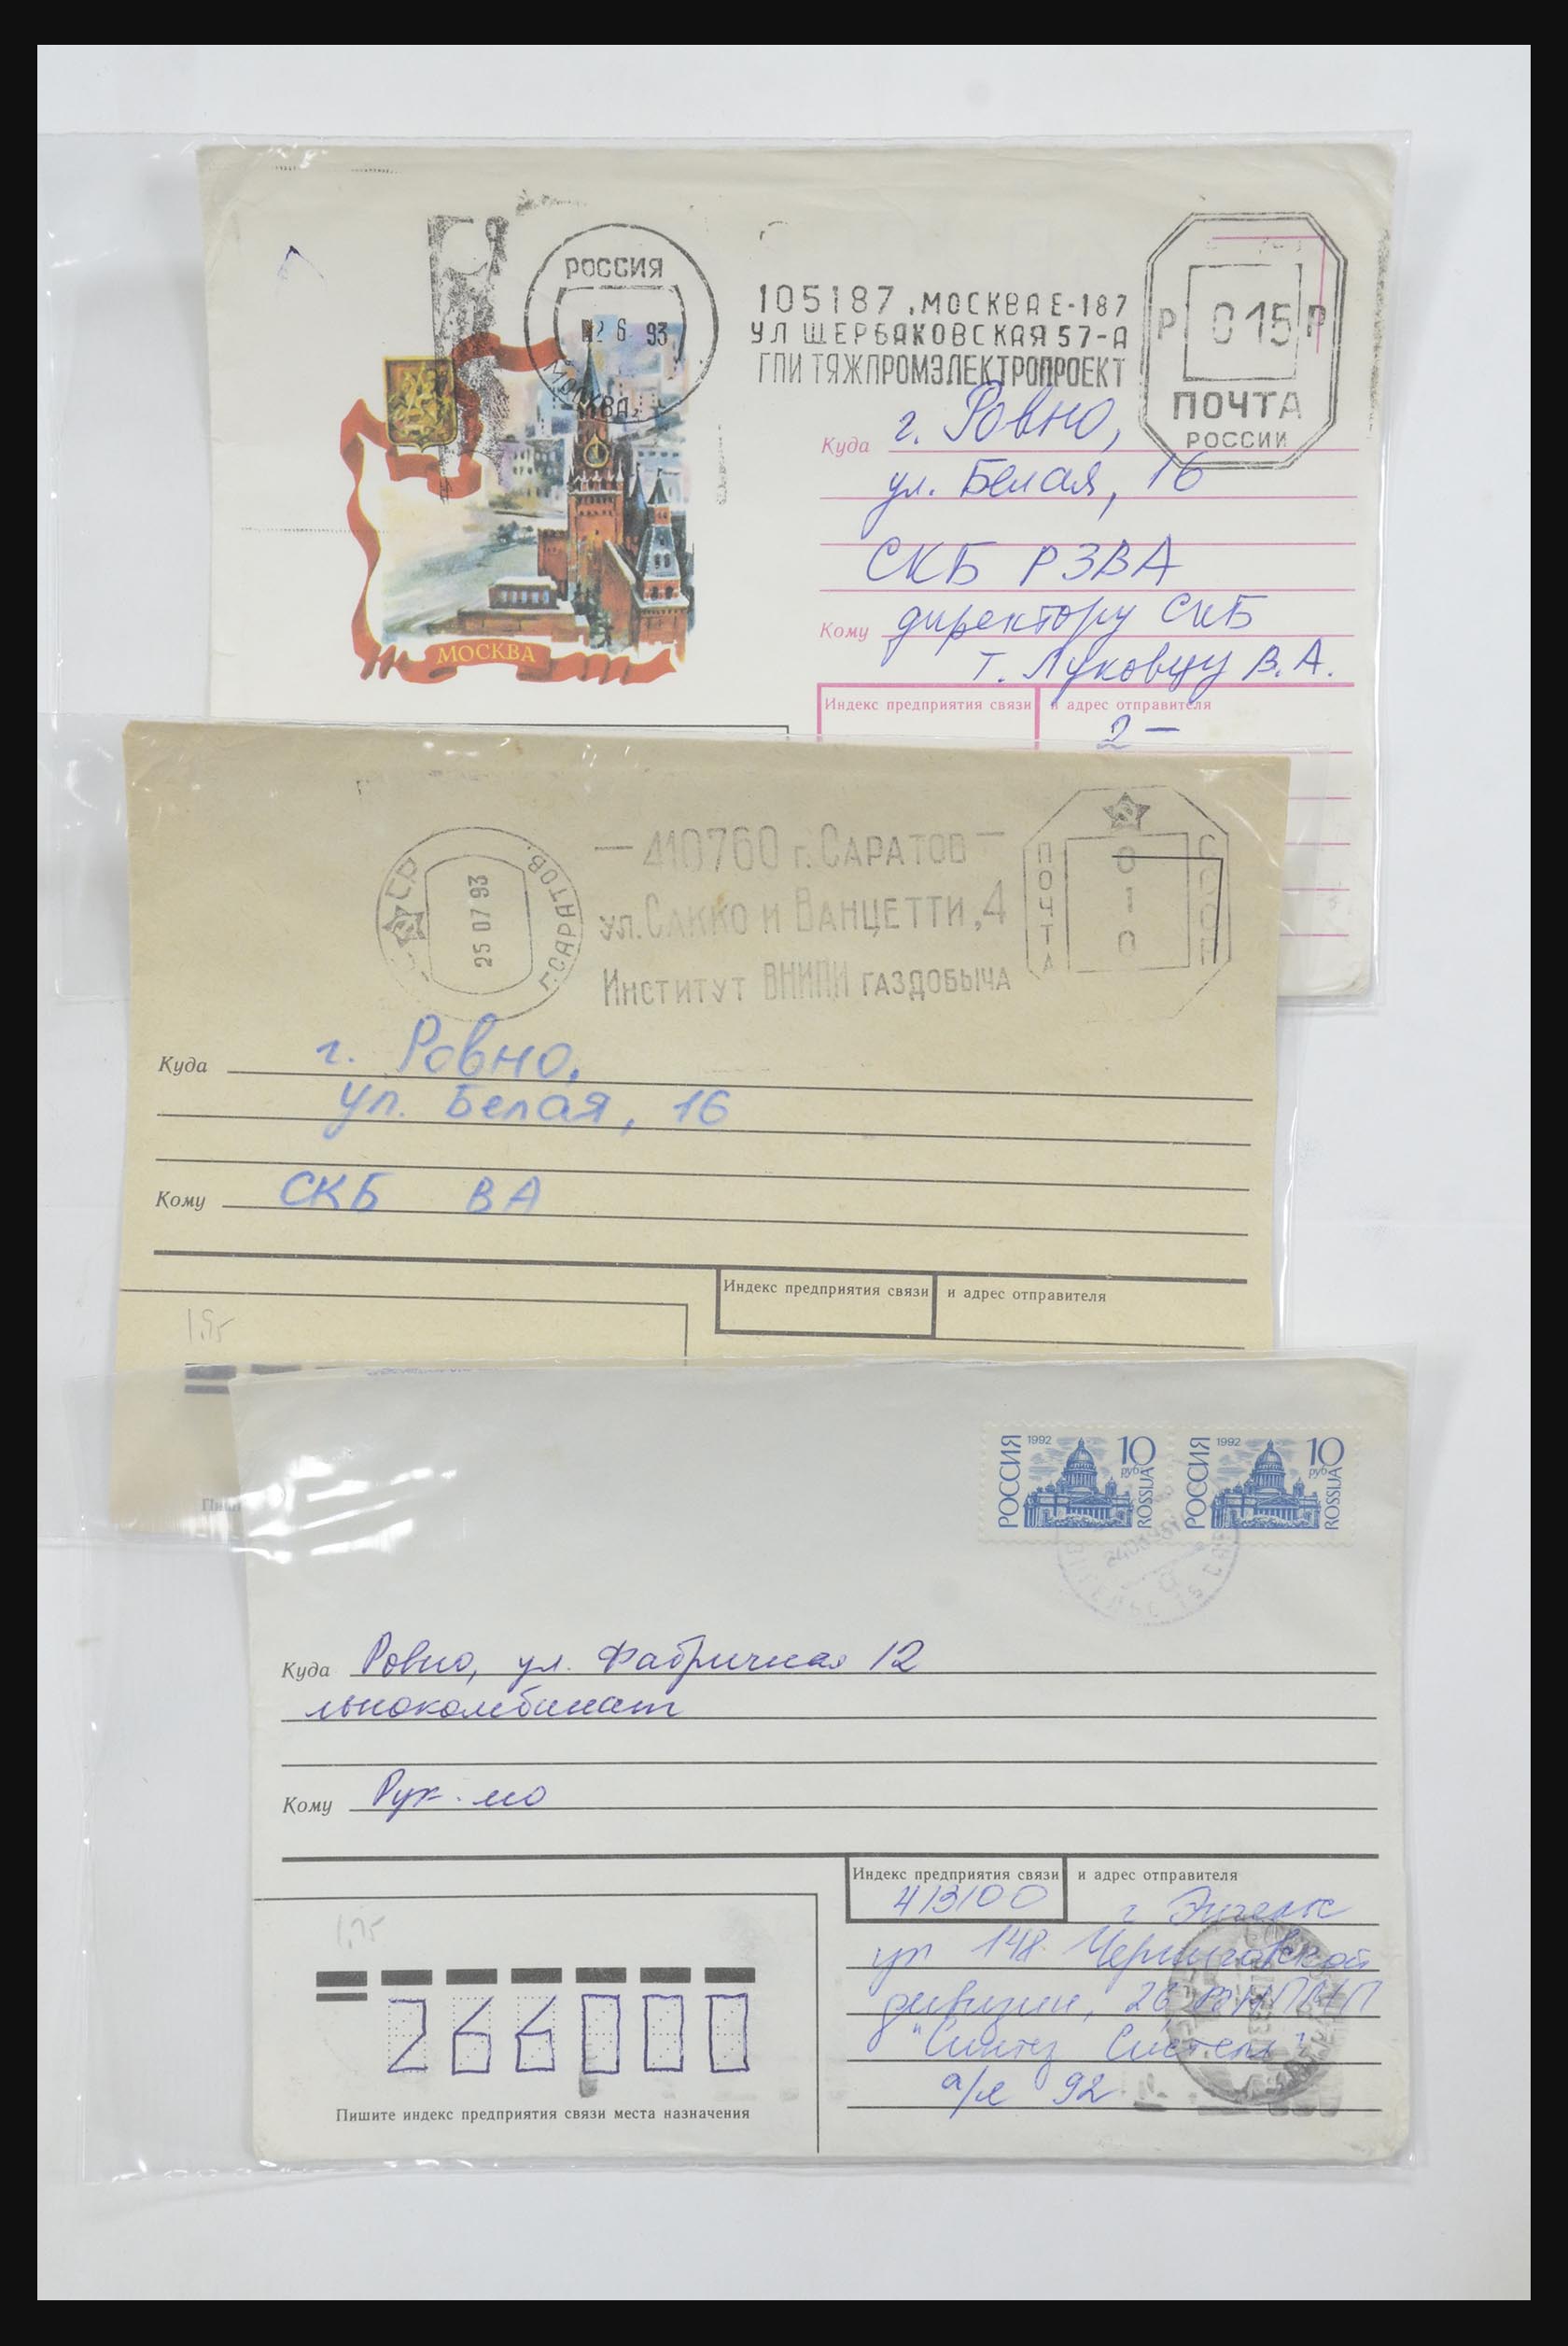 РОССИЯ
2 6 93
МОСКВА
105187, МОСКВА Е-187
УЛ ЩЕРБАКОВСКАЯ 57-А
ГПИ ТЯЖПРОМЭЛЕКТРОПРОЕКТ
Р 015 Р
ПОЧТА
РОССИИ
МОСКВА
Куда г. Ровно,
ул. Белая, 16
СКБ РЗВА
Кому директору СКБ
т. Луковцу В.А.
Индекс предприятия связи и адрес отправителя
2 —
25 07 93
Г.САРАТОВ.
— 410760 г. САРАТОВ —
ул. САККО И ВАНЦЕТТИ, 4
Институт ВНИПИ ГАЗДОБЫЧА
ПОЧТА
010
СССР
Куда г. Ровно,
ул. Белая, 16
Кому СКБ ВА
Индекс предприятия связи и адрес отправителя
1,95
РОССИЯ 1992 10 руб ROSSIJA
РОССИЯ 1992 10 руб ROSSIJA
Куда Ровно, ул. Фабричная 12
льнокомбинат
Кому Рук-лю
Индекс предприятия связи и адрес отправителя
413100 г Энгельс
ул 148 Черниговской
дивизии, 26
"Синтез Системы"
а/я 92
1,75
266000
Пишите индекс предприятия связи места назначения